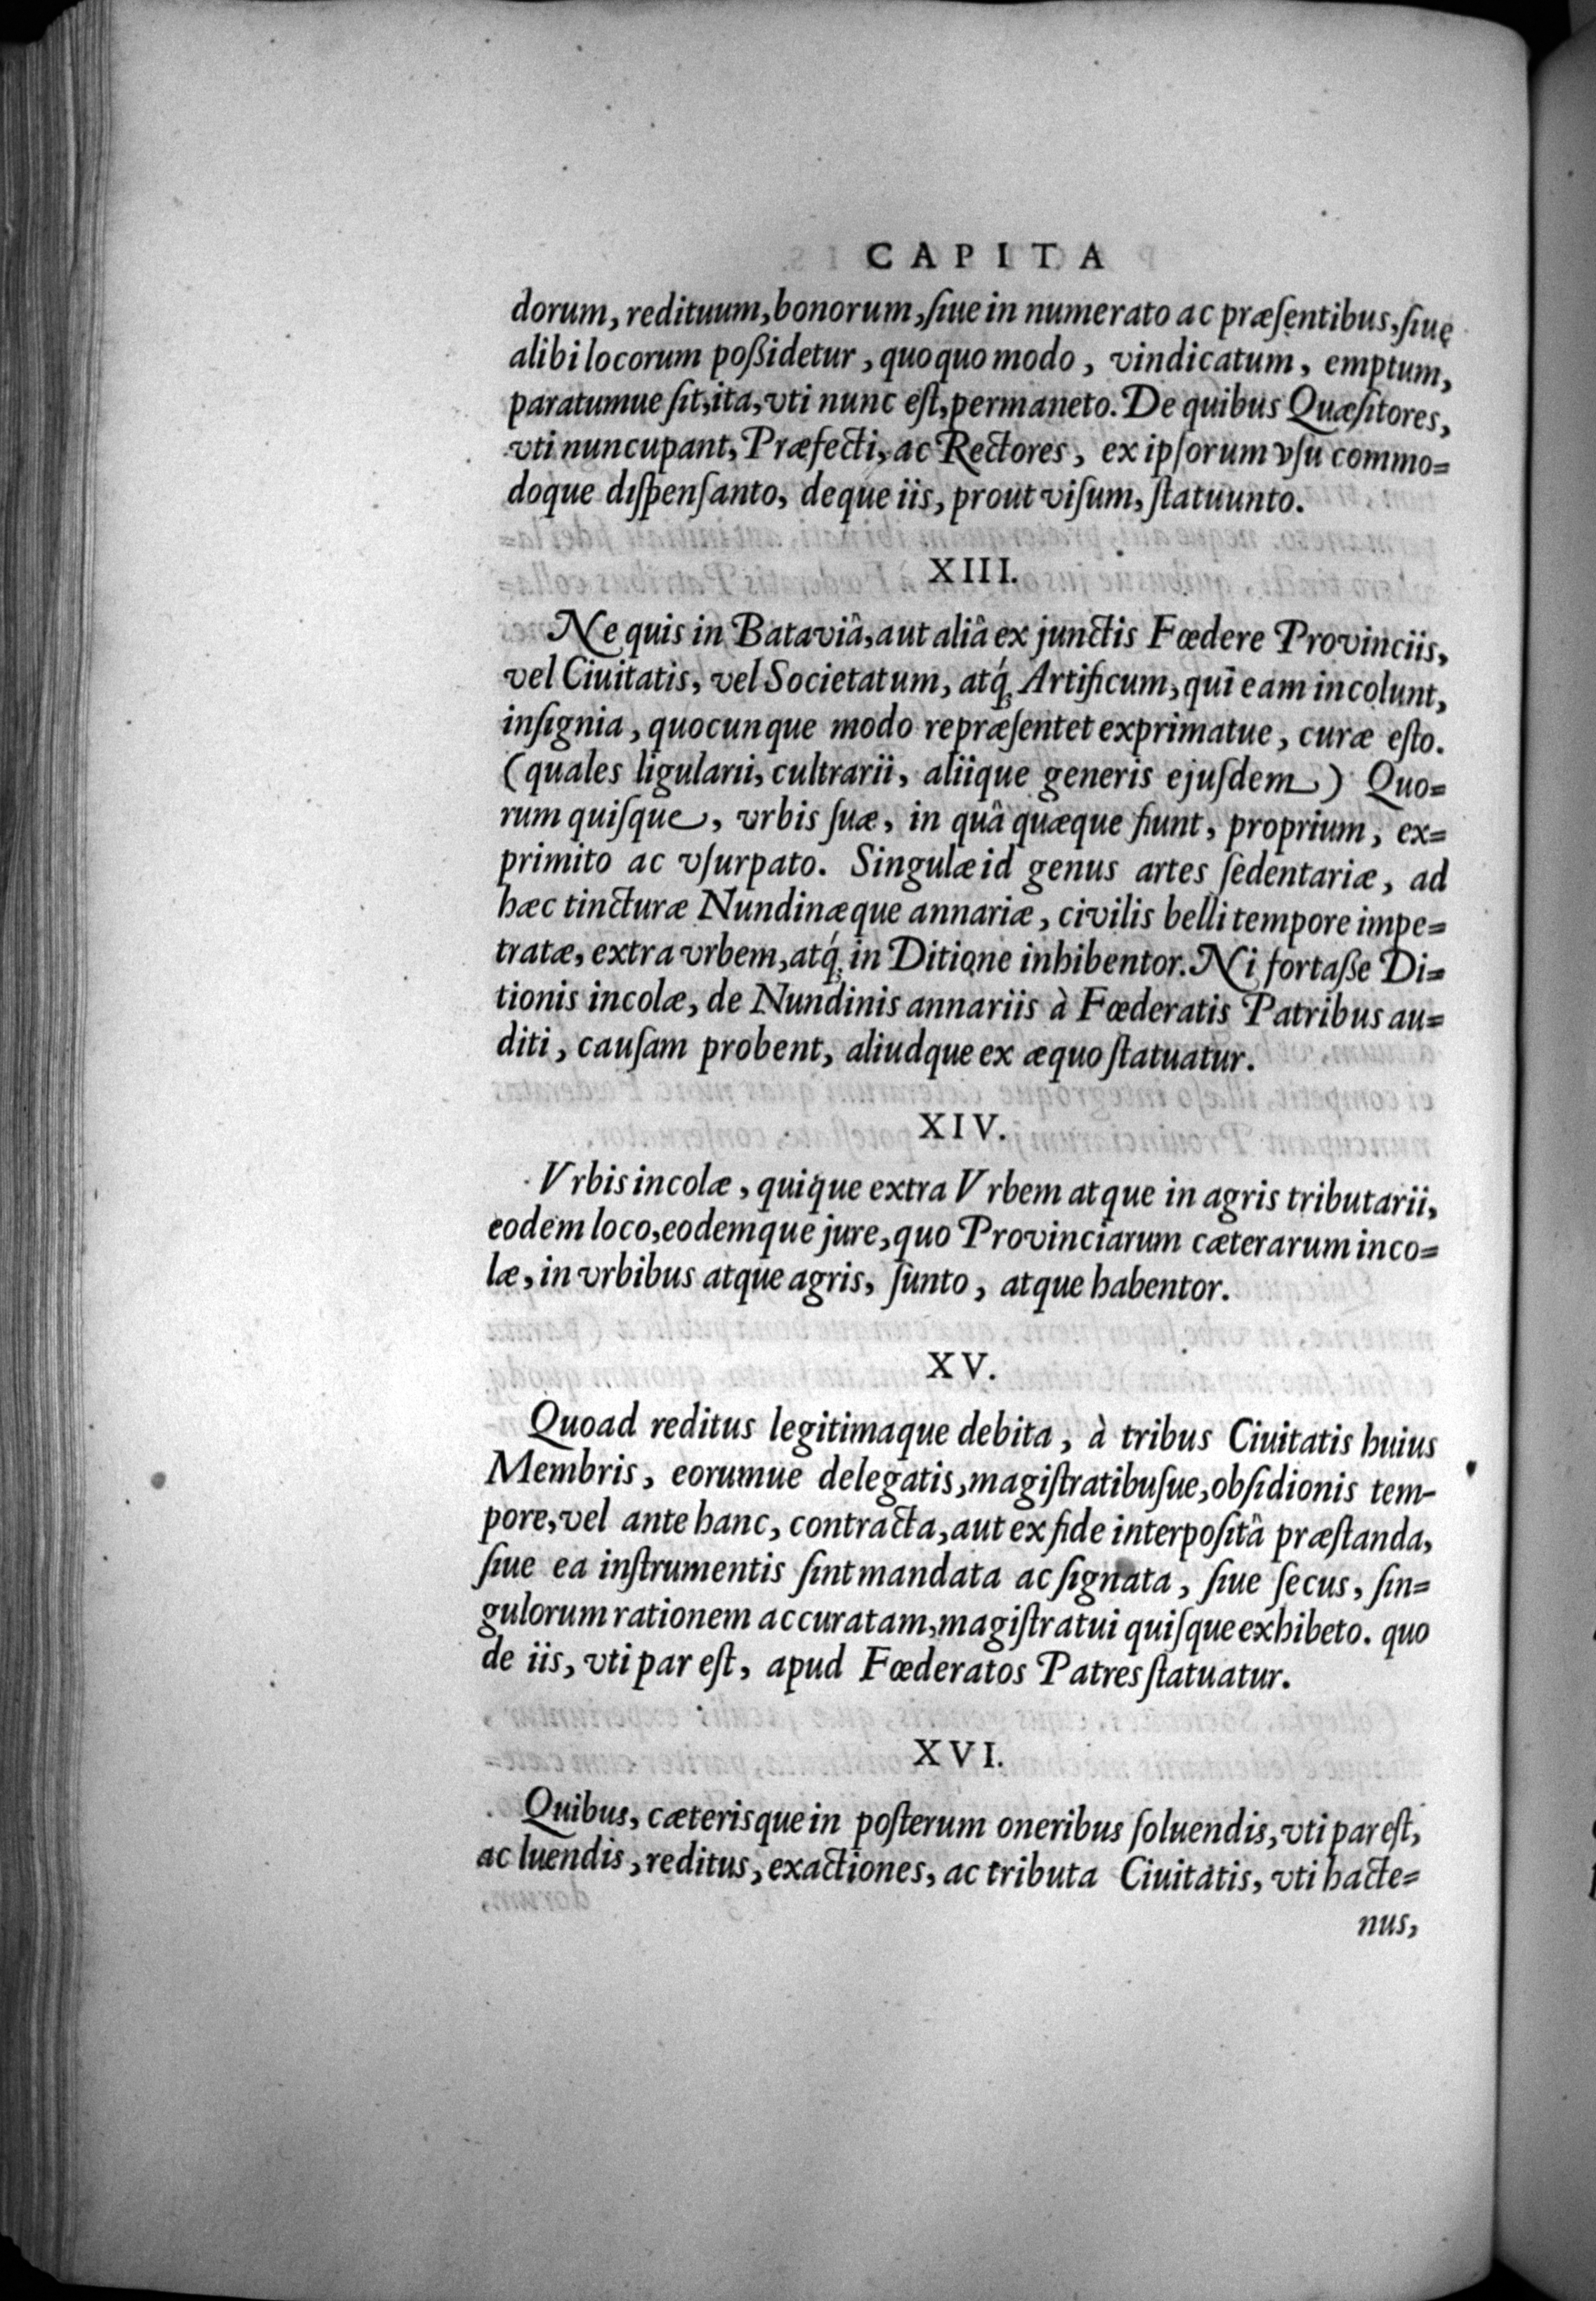 CAPITA
dorum, redituum, bonorum, ſiue in numerato ac præſentibus, ſiue
alibi locorum poßidetur, quoquo modo, vindicatum, emptum,
paratumue ſit, ita, vti nunc eſt, permaneto. De quibus Quæſitores,
vti nuncupant, Præfecti, ac Rectores, ex ipſorum vſu commo=
doque diſpenſanto, deque iis, prout viſum, ſtatuunto.
XIII.
Ne quis in Bataviâ, aut aliâ ex junctis Fœdere Provinciis,
vel Ciuitatis, vel Societatum, atq́; Artificum, qui eam incolunt,
inſignia, quocunque modo repræſentet exprimatue, curæ eſto.
(quales ligularii, cultrarii, aliique generis ejuſdem) Quo=
rum quiſque, vrbis ſuæ, in quâ quæque fiunt, proprium, ex=
primito ac vſurpato. Singulæ id genus artes ſedentariæ, ad
hæc tincturæ Nundinæque annariæ, civilis belli tempore impe=
tratæ, extra vrbem, atq́; in Ditione inhibentor. Ni fortaße Di=
tionis incolæ, de Nundinis annariis à Fœderatis Patribus au=
diti, cauſam probent, aliudque ex æquo ſtatuatur.
XIV.
Vrbis incolæ, quique extra Vrbem atque in agris tributarii,
eodem loco, eodemque jure, quo Provinciarum cæterarum inco=
læ, in vrbibus atque agris, ſunto, atque habentor.
XV.
Quoad reditus legitimaque debita, à tribus Ciuitatis huius
Membris, eorumue delegatis, magiſtratibuſue, obſidionis tem-
pore, vel ante hanc, contracta, aut ex fide interpoſitâ præſtanda,
ſiue ea inſtrumentis ſint mandata ac ſignata, ſiue ſecus, ſin=
gulorum rationem accuratam, magiſtratui quiſque exhibeto. quo
de iis, vti par eſt, apud Fœderatos Patres ſtatuatur.
XVI.
Quibus, cæterisque in poſterum oneribus ſoluendis, vti par eſt,
ac luendis, reditus, exactiones, ac tributa Ciuitatis, vti hacte=
nus,